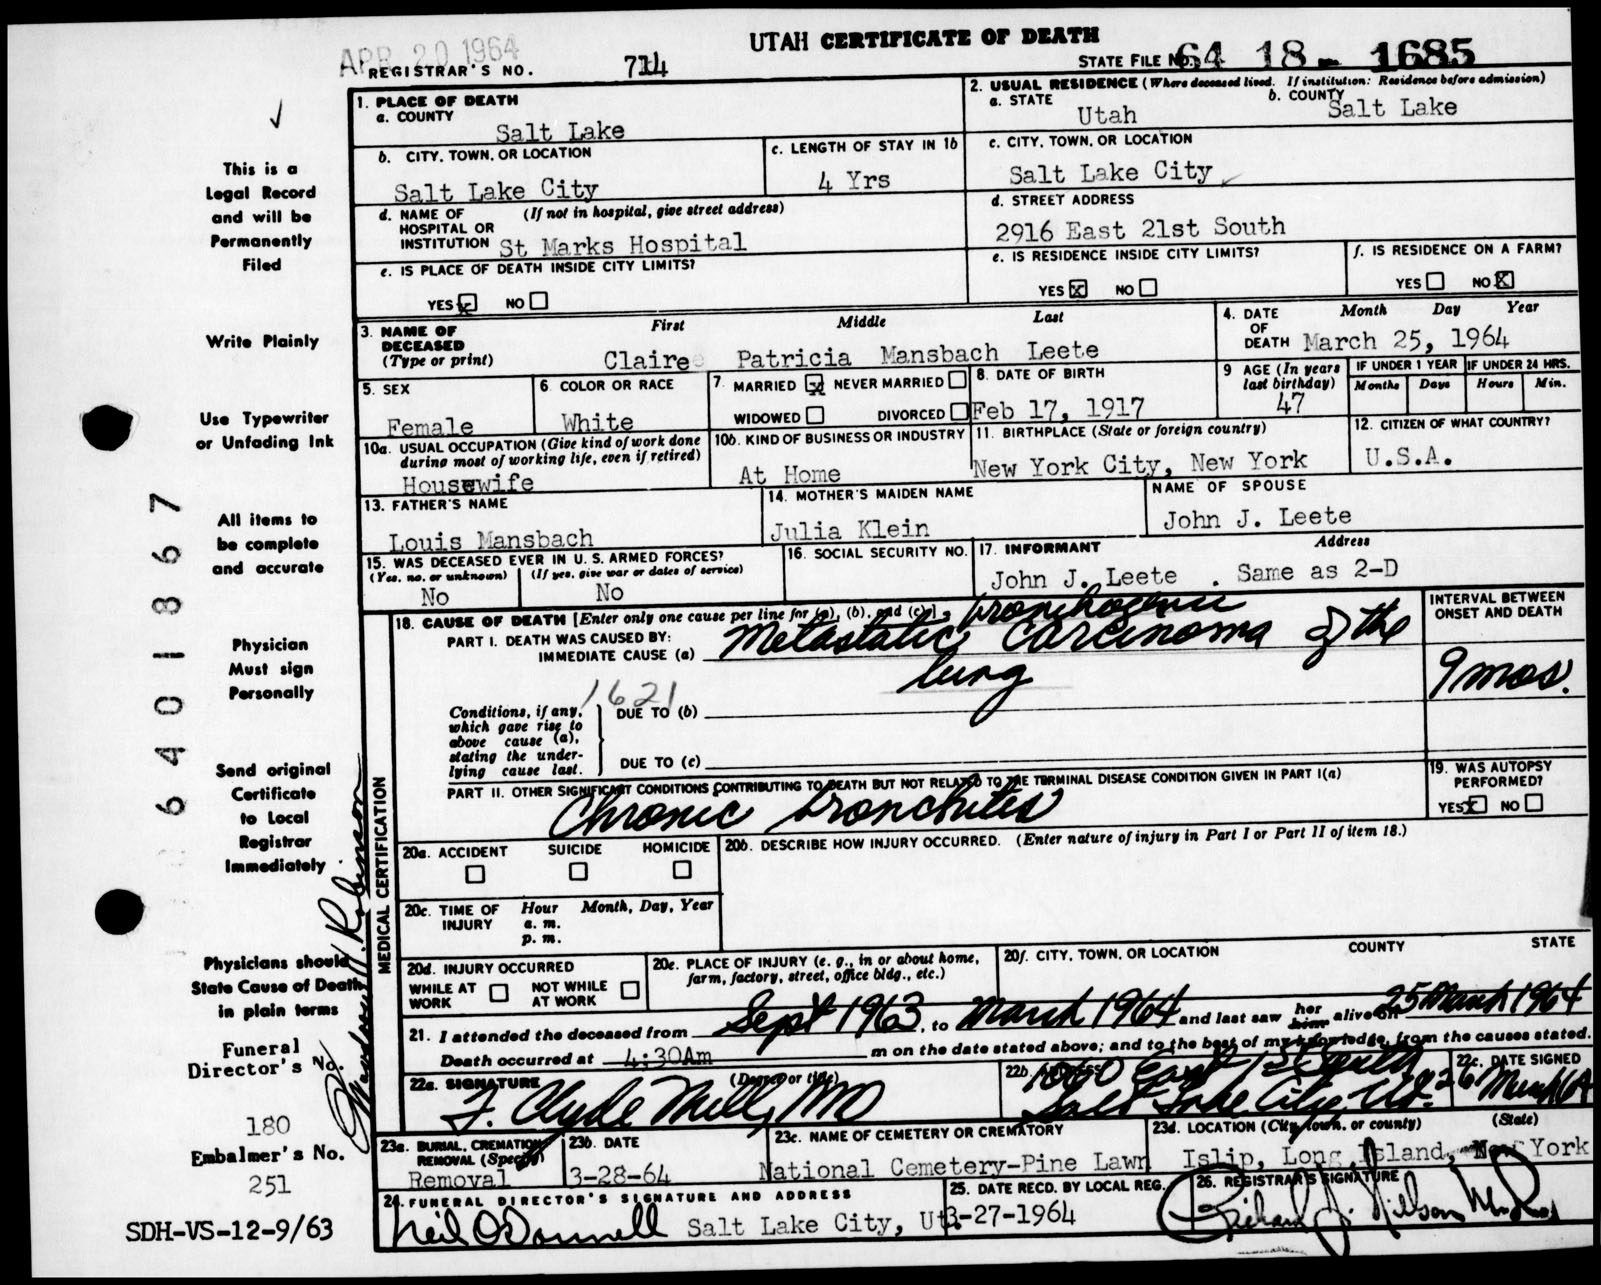 APR 20 1964
UTAH CERTIFICATE OF DEATH
REGISTRAR'S NO. 714
STATE FILE NO. 64 18 - 1685
1. PLACE OF DEATH
a. COUNTY
Salt Lake
2. USUAL RESIDENCE (Where deceased lived. If institution: Residence before admission)
a. STATE
Utah
b. COUNTY
Salt Lake
b. CITY, TOWN, OR LOCATION
Salt Lake City
c. LENGTH OF STAY IN 1b
4 Yrs
c. CITY, TOWN, OR LOCATION
Salt Lake City
d. NAME OF HOSPITAL OR INSTITUTION (If not in hospital, give street address)
St Marks Hospital
d. STREET ADDRESS
2916 East 21st South
e. IS PLACE OF DEATH INSIDE CITY LIMITS?
YES X NO
e. IS RESIDENCE INSIDE CITY LIMITS?
YES X NO
f. IS RESIDENCE ON A FARM?
YES NO X
3. NAME OF DECEASED (Type or print)
First Middle Last
Claire Patricia Mansbach Leete
4. DATE OF DEATH
Month Day Year
March 25, 1964
5. SEX
Female
6. COLOR OR RACE
White
7. MARRIED X NEVER MARRIED
WIDOWED DIVORCED
8. DATE OF BIRTH
Feb 17, 1917
9 AGE (In years last birthday)
47
IF UNDER 1 YEAR
Months Days
IF UNDER 24 HRS.
Hours Min.
10a. USUAL OCCUPATION (Give kind of work done during most of working life, even if retired)
Housewife
10b. KIND OF BUSINESS OR INDUSTRY
At Home
11. BIRTHPLACE (State or foreign country)
New York City, New York
12. CITIZEN OF WHAT COUNTRY?
U.S.A.
13. FATHER'S NAME
Louis Mansbach
14. MOTHER'S MAIDEN NAME
Julia Klein
NAME OF SPOUSE
John J. Leete
15. WAS DECEASED EVER IN U. S. ARMED FORCES?
(Yes, no, or unknown) (If yes, give war or dates of service)
No No
16. SOCIAL SECURITY NO.
17. INFORMANT Address
John J. Leete . Same as 2-D
MEDICAL CERTIFICATION
18. CAUSE OF DEATH [Enter only one cause per line for (a), (b), and (c).]
PART I. DEATH WAS CAUSED BY:
IMMEDIATE CAUSE (a)
bronchogenic
Metastatic Carcinoma of the
lung
INTERVAL BETWEEN ONSET AND DEATH
9 mos.
1621
Conditions, if any, which gave rise to above cause (a), stating the underlying cause last.
DUE TO (b)
DUE TO (c)
PART II. OTHER SIGNIFICANT CONDITIONS CONTRIBUTING TO DEATH BUT NOT RELATED TO THE TERMINAL DISEASE CONDITION GIVEN IN PART I(a)
Chronic bronchitis
19. WAS AUTOPSY PERFORMED?
YES X NO
20a. ACCIDENT SUICIDE HOMICIDE
20b. DESCRIBE HOW INJURY OCCURRED. (Enter nature of injury in Part I or Part II of item 18.)
20c. TIME OF INJURY
Hour Month, Day, Year
a. m.
p. m.
20d. INJURY OCCURRED
WHILE AT WORK NOT WHILE AT WORK
20e. PLACE OF INJURY (e. g., in or about home, farm, factory, street, office bldg., etc.)
20f. CITY, TOWN, OR LOCATION COUNTY STATE
21. I attended the deceased from Sept 1963, to March 1964 and last saw her him alive on 25 March 1964
Death occurred at 4:30Am m on the date stated above; and to the best of my knowledge, from the causes stated.
22a. SIGNATURE (Degree or title)
F. Clyde Mill, MD
22b. ADDRESS
1060 East 1st South
Salt Lake City, Ut.
22c. DATE SIGNED
26 March 64
23a. BURIAL, CREMATION, REMOVAL (Specify)
Removal
23b. DATE
3-28-64
23c. NAME OF CEMETERY OR CREMATORY
National Cemetery-Pine Lawn
23d. LOCATION (City, town, or county) (State)
Islip, Long Island, New York
24. FUNERAL DIRECTOR'S SIGNATURE AND ADDRESS
Neil O'Donnell Salt Lake City, Ut.
25. DATE RECD. BY LOCAL REG.
3-27-1964
26. REGISTRAR'S SIGNATURE
This is a
Legal Record
and will be
Permanently
Filed
Write Plainly
Use Typewriter
or Unfading Ink
All items to
be complete
and accurate
Physician
Must sign
Personally
Send original
Certificate
to Local
Registrar
Immediately
Physicians should
State Cause of Death
in plain terms
Funeral
Director's No.
180
Embalmer's No.
251
SDH-VS-12-9/63
6401867
Robinson